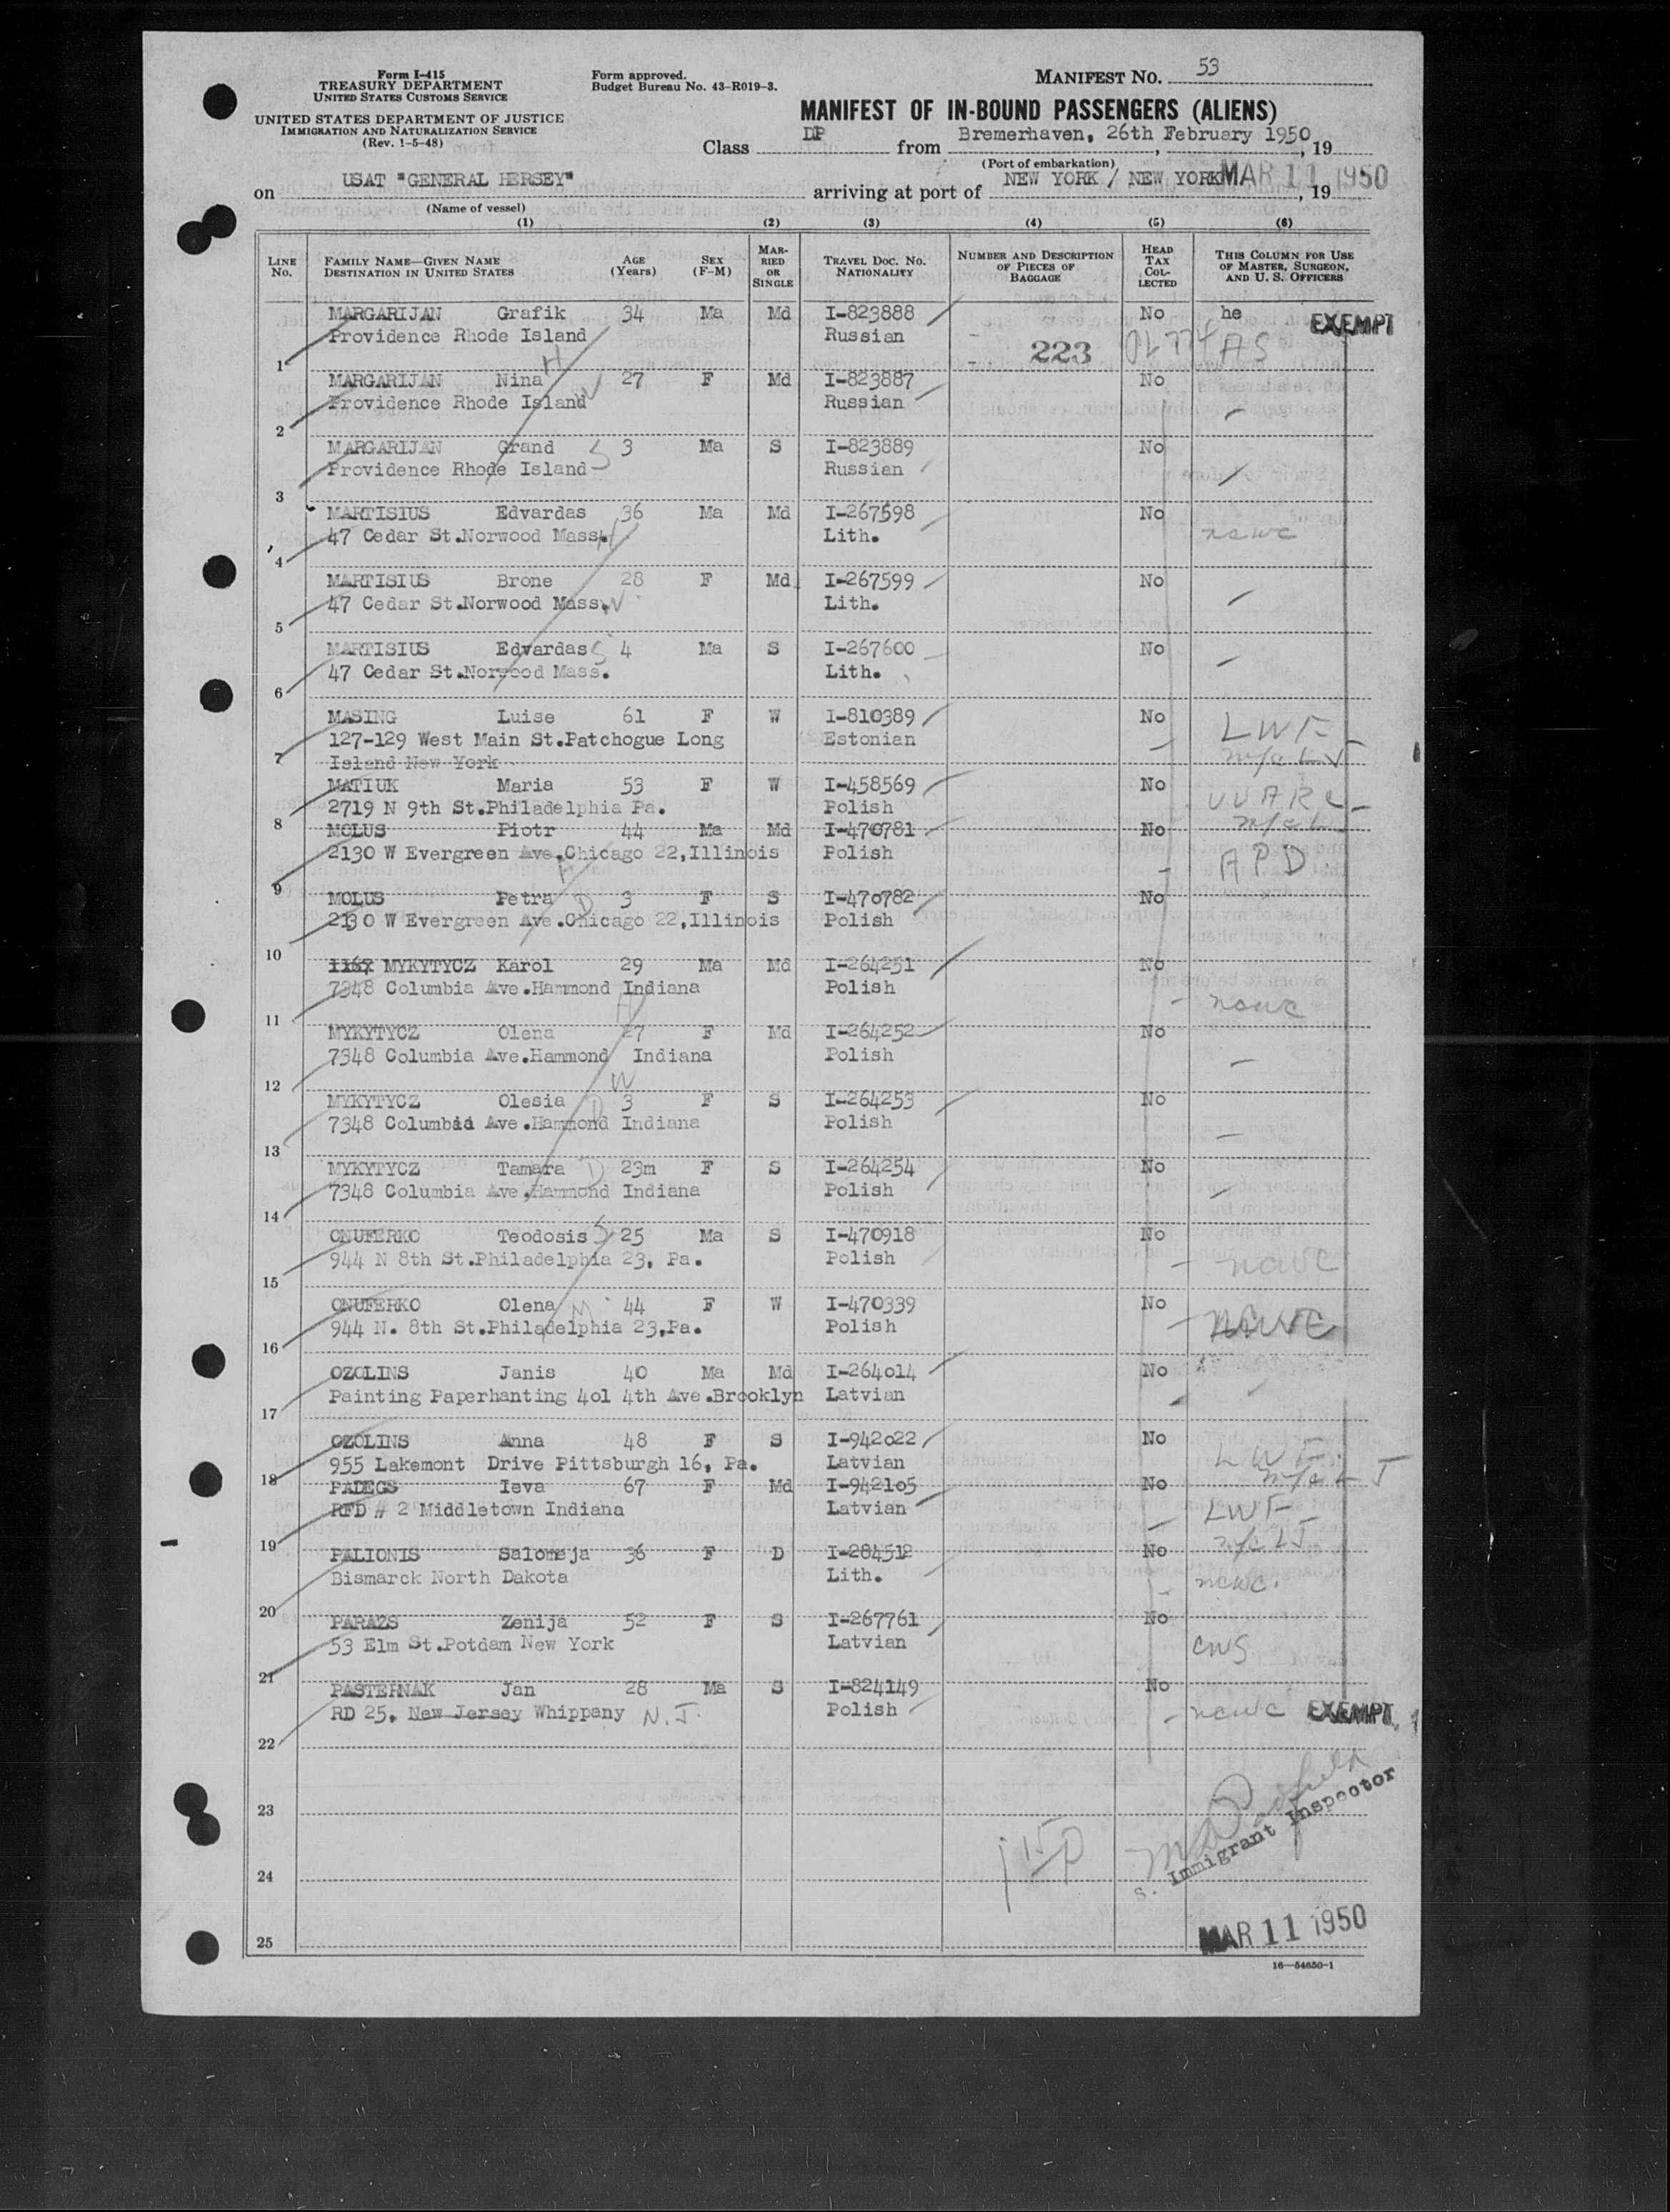 Form I-415
TREASURY DEPARTMENT
UNITED STATES CUSTOMS SERVICE
UNITED STATES DEPARTMENT OF JUSTICE
IMMIGRATION AND NATURALIZATION SERVICE
(Rev. 1-5-48)
Form approved.
Budget Bureau No. 43-R019-3.
MANIFEST NO. 53
MANIFEST OF IN-BOUND PASSENGERS (ALIENS)
Class DP from Bremerhaven, 26th February 1950, 19
(Port of embarkation)
on USAT "GENERAL HERSEY" arriving at port of NEW YORK / NEW YORK MAR 11 1950, 19
(Name of vessel)
(1) (2) (3) (4) (5) (6)
LINE No. FAMILY NAME—GIVEN NAME DESTINATION IN UNITED STATES AGE (Years) SEX (F-M) MARRIED OR SINGLE TRAVEL DOC. NO. NATIONALITY NUMBER AND DESCRIPTION OF PIECES OF BAGGAGE HEAD TAX COLLECTED THIS COLUMN FOR USE OF MASTER, SURGEON, AND U. S. OFFICERS
MARGARIJAN Grafik 34 Ma Md I-823888 No he EXEMPT
Providence Rhode Island Russian 223 AS
1 H
MARGARIJAN Nina 27 F Md I-823887 No
Providence Rhode Island W Russian
2
MARGARIJAN Grand 3 Ma S I-823889 No
Providence Rhode Island S Russian
3
MARTISIUS Edvardas 36 Ma Md I-267598 No
47 Cedar St.Norwood Mass. H Lith. ncwc
4
MARTISIUS Brone 28 F Md I-267599 No
47 Cedar St.Norwood Mass. W Lith.
5
MARTISIUS Edvardas S 4 Ma S I-267600 No
47 Cedar St.Norwood Mass. Lith.
6
MASING Luise 61 F W I-810389 No LWF
127-129 West Main St.Patchogue Long Estonian
7 Island New York
MATIUK Maria 53 F W I-458569 No UUARC
2719 N 9th St.Philadelphia Pa. Polish
8
MOLUS Piotr 44 Ma Md I-470781 No
2130 W Evergreen Ave.Chicago 22,Illinois Polish APD
9
MOLUS Petra D 3 F S I-470782 No
2130 W Evergreen Ave.Chicago 22,Illinois Polish
10
1167 MYKYTYCZ Karol 29 Ma Md I-264251 No
7348 Columbia Ave.Hammond Indiana Polish ncwc
11 H
MYKYTYCZ Olena 27 F Md I-264252 No
7348 Columbia Ave.Hammond Indiana Polish
12 W
MYKYTYCZ Olesia D 3 F S I-264253 No
7348 Columbia Ave.Hammond Indiana Polish
13
MYKYTYCZ Tamara D 23m F S I-264254 No
7348 Columbia Ave.Hammond Indiana Polish
14
ONUFERKO Teodosis S 25 Ma S I-470918 No
944 N 8th St.Philadelphia 23, Pa. Polish ncwc
15
ONUFERKO Olena M 44 F W I-470339 No
944 N. 8th St.Philadelphia 23,Pa. Polish NCWC
16
OZOLINS Janis 40 Ma Md I-264014 No
Painting Paperhanting 401 4th Ave.Brooklyn Latvian
17
OZOLINS Anna 48 F S I-942022 No
955 Lakemont Drive Pittsburgh 16, Pa. Latvian LWF
18
PADEGS Ieva 67 F Md I-942105 No
RFD # 2 Middletown Indiana Latvian LWF
19
PALIONIS Salomeja 36 F D I-284512 No
Bismarck North Dakota Lith. ncwc.
20
PARAZS Zenija 52 F S I-267761 No
53 Elm St.Potdam New York Latvian CWS
21
PASTERNAK Jan 28 Ma S I-824149 No
RD 25, New Jersey Whippany N.J. Polish ncwc EXEMPT
22
23
24
S. Immigrant Inspector
25
MAR 11 1950
16—54650-1